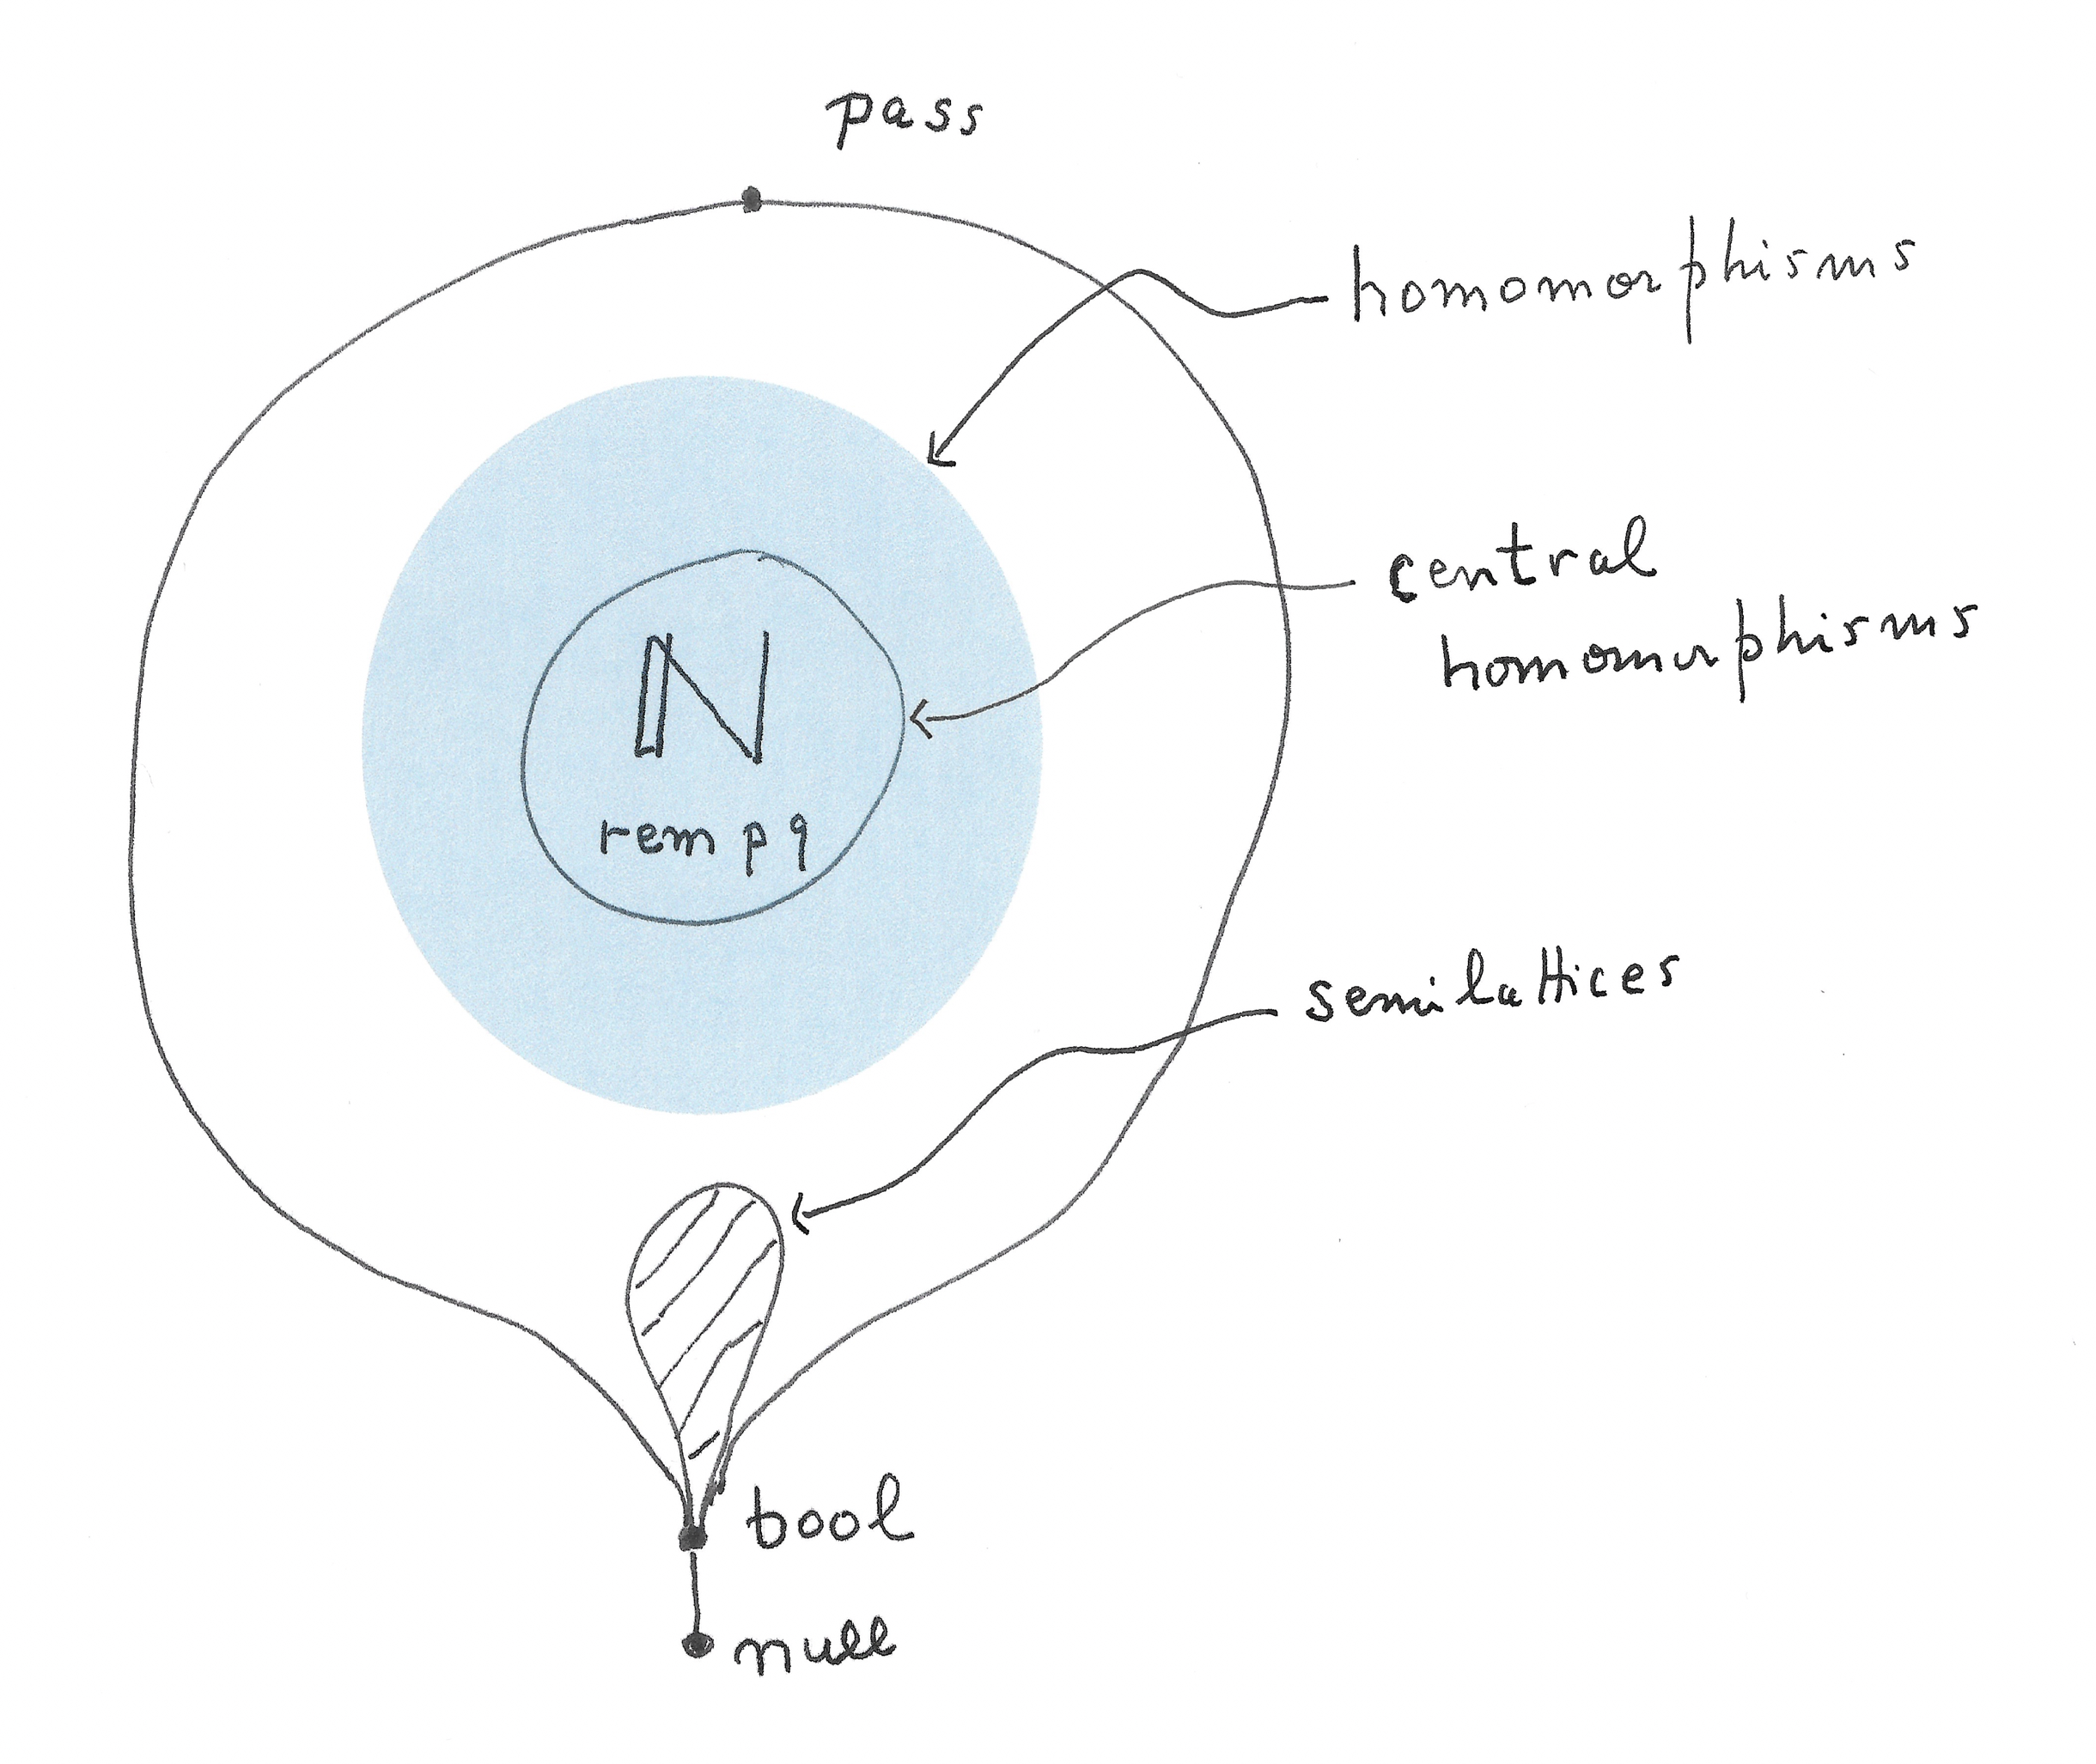 pass
homomorphisms
central
homomorphisms
ℕ
rem p q
semilattices
bool
null